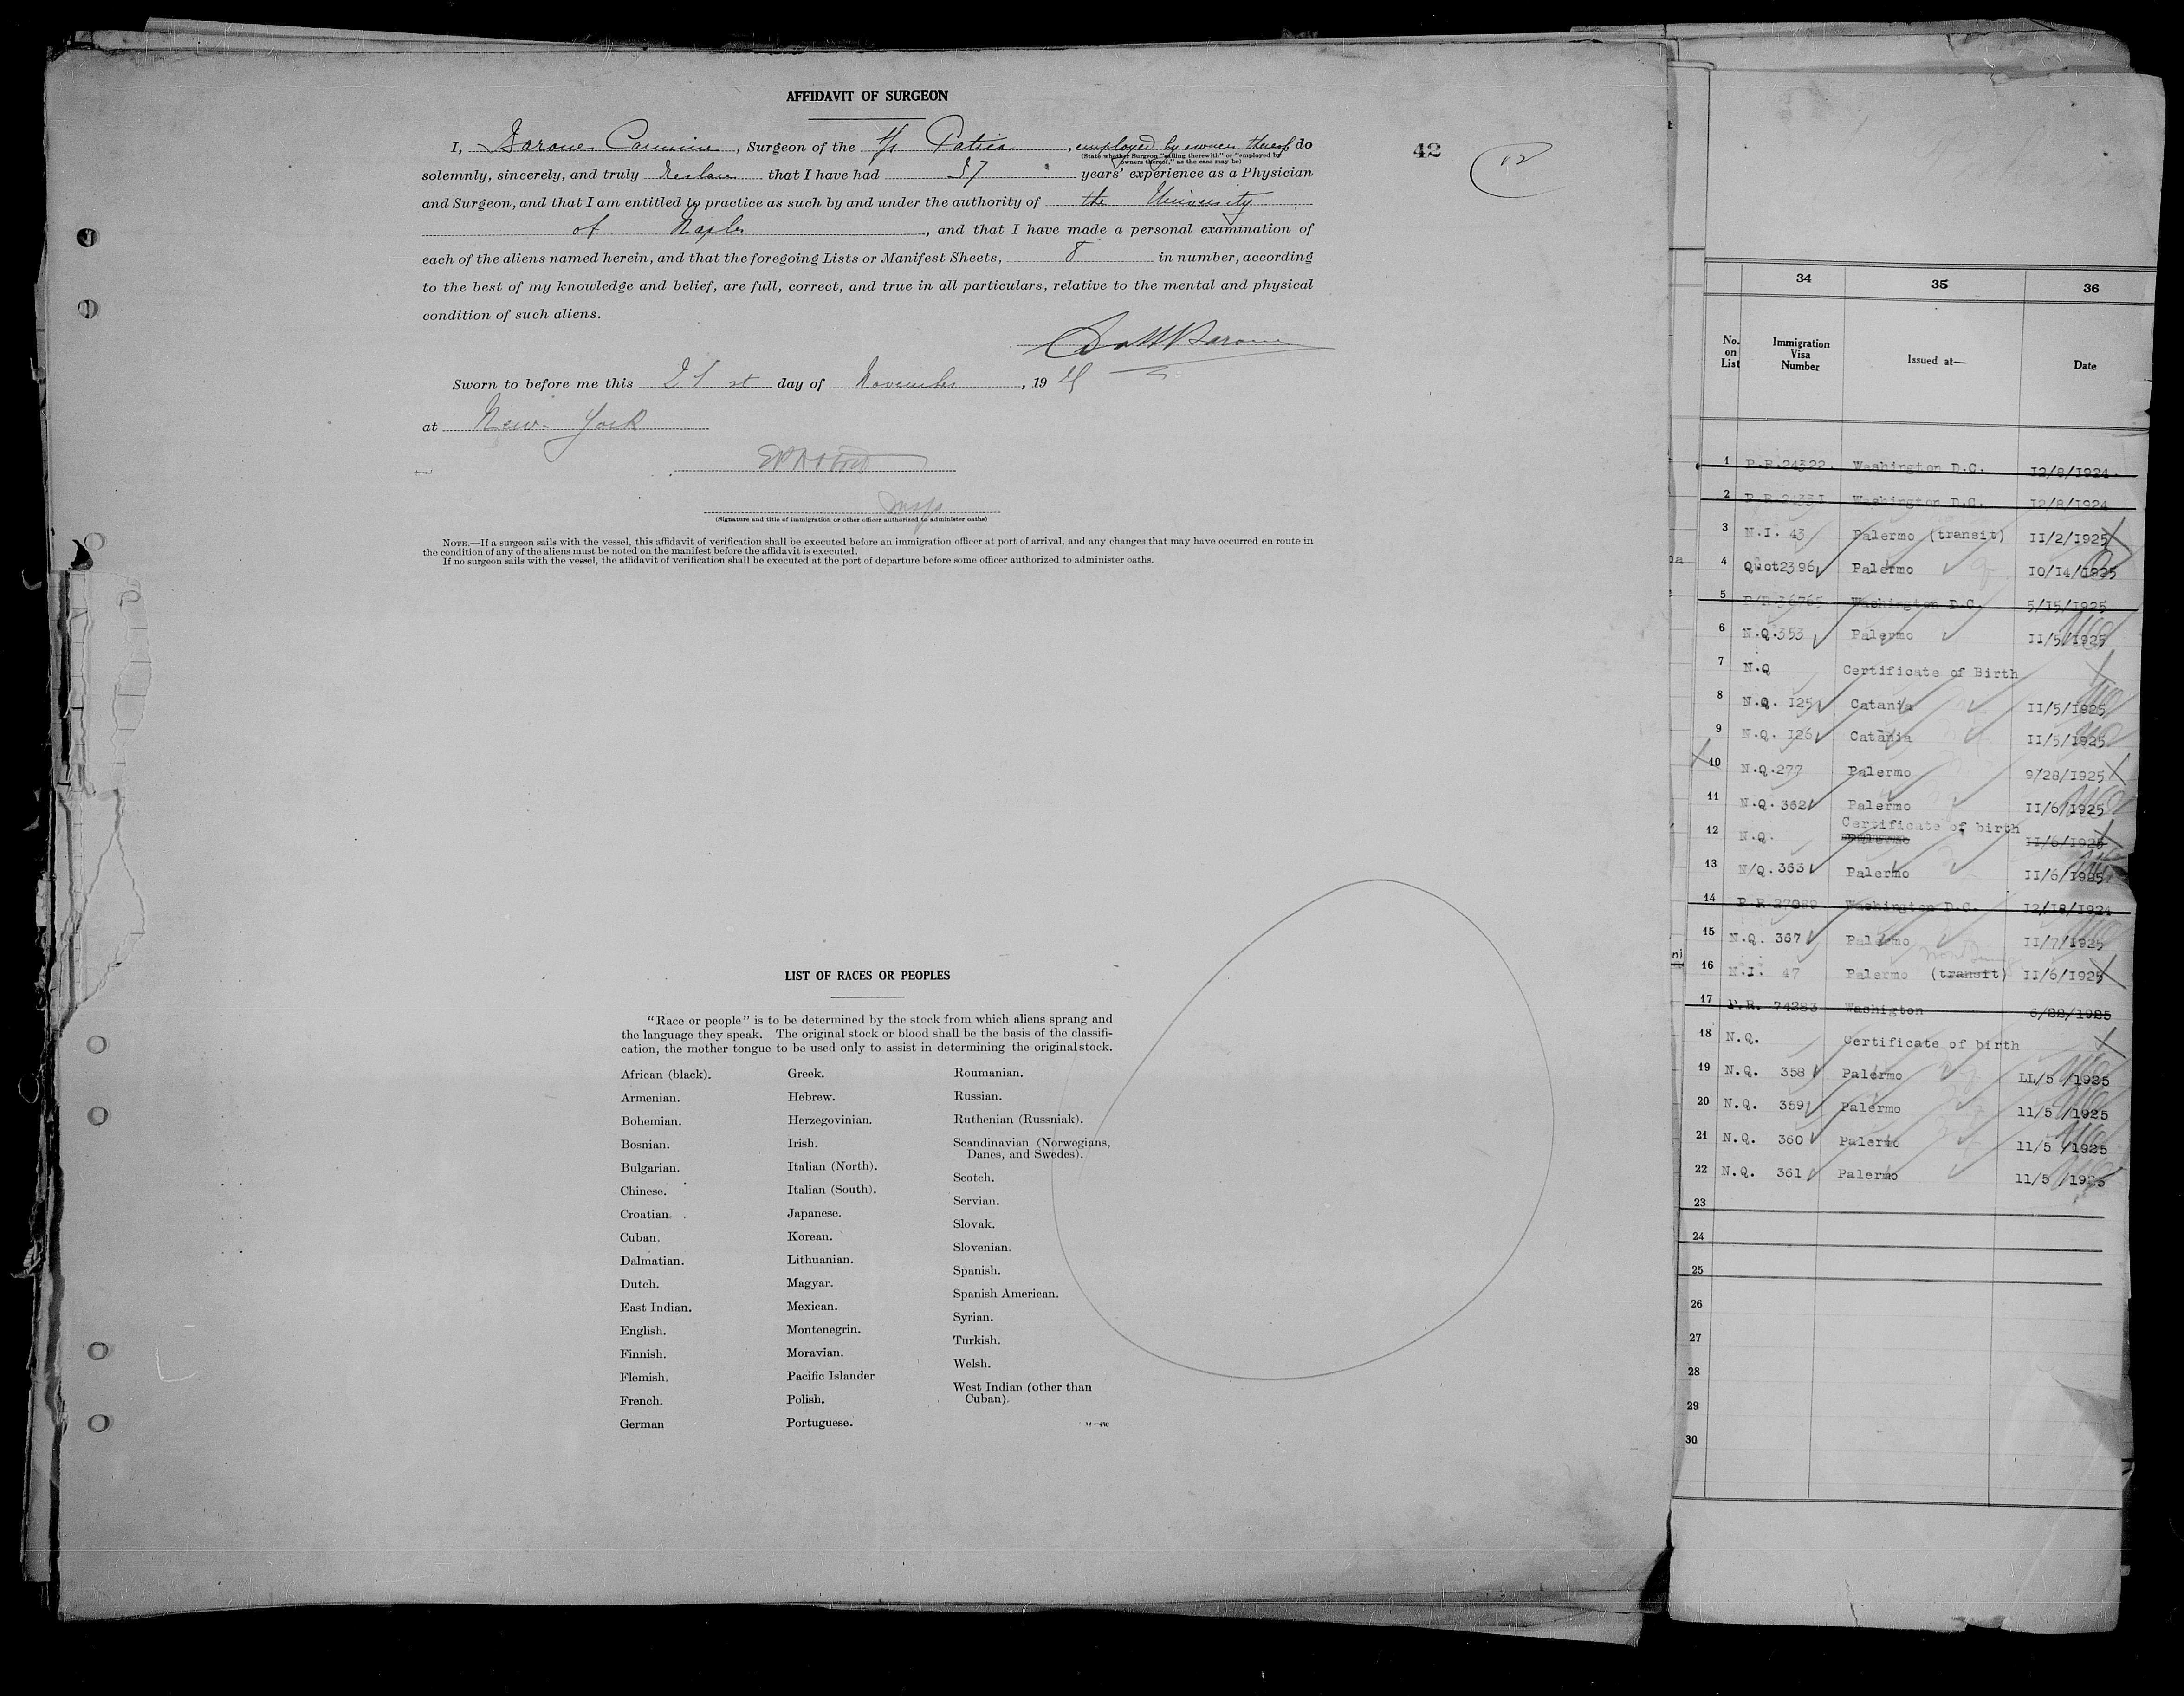 AFFIDAVIT OF SURGEON
I, Barone Carmine, Surgeon of the s/s Patria, employed by owners thereof do
(State whether Surgeon "sailing therewith" or "employed by
owners thereof," as the case may be)
solemnly, sincerely, and truly declare that I have had 37 years' experience as a Physician
and Surgeon, and that I am entitled to practice as such by and under the authority of the University
of Naples, and that I have made a personal examination of
each of the aliens named herein, and that the foregoing Lists or Manifest Sheets, 8 in number, according
to the best of my knowledge and belief, are full, correct, and true in all particulars, relative to the mental and physical
condition of such aliens.
Dott Barone
Sworn to before me this 21 st day of November, 19 25
at New-York
Insp
(Signature and title of immigration or other officer authorized to administer oaths)
NOTE.—If a surgeon sails with the vessel, this affidavit of verification shall be executed before an immigration officer at port of arrival, and any changes that may have occurred en route in
the condition of any of the aliens must be noted on the manifest before the affidavit is executed.
If no surgeon sails with the vessel, the affidavit of verification shall be executed at the port of departure before some officer authorized to administer oaths.
42
12
LIST OF RACES OR PEOPLES
"Race or people" is to be determined by the stock from which aliens sprang and
the language they speak. The original stock or blood shall be the basis of the classifi-
cation, the mother tongue to be used only to assist in determining the original stock.
African (black).
Armenian.
Bohemian.
Bosnian.
Bulgarian.
Chinese.
Croatian.
Cuban.
Dalmatian.
Dutch.
East Indian.
English.
Finnish.
Flemish.
French.
German
Greek.
Hebrew.
Herzegovinian.
Irish.
Italian (North).
Italian (South).
Japanese.
Korean.
Lithuanian.
Magyar.
Mexican.
Montenegrin.
Moravian.
Pacific Islander
Polish.
Portuguese.
Roumanian.
Russian.
Ruthenian (Russniak).
Scandinavian (Norwegians,
Danes, and Swedes).
Scotch.
Servian.
Slovak.
Slovenian.
Spanish.
Spanish American.
Syrian.
Turkish.
Welsh.
West Indian (other than
Cuban).
34 35 36
No. on List Immigration Visa Number Issued at— Date
1 P.R.24322. Washington D.C. 12/8/1924
2 P.R.24331 Washington D.C. 12/8/1924
3 N.I. 43 Palermo (transit) II/2/1925
4 Quot2396 Palermo IO/14/1925
5 P/R 36765 Washington D.C. 5/15/1925
6 N.Q.353 Palermo II/5/1925
7 N.Q Certificate of Birth
8 N.Q. I25 Catania II/5/1925
9 N.Q. I26 Catania II/5/1925
10 N.Q.277 Palermo 9/28/1925
11 N.Q.362 Palermo II/6/1925
12 N.Q. Certificate of birth II/6/1925
Palermo
13 N/Q.363 Palermo II/6/1925
14 P.R.27089 Washington D.C. I2/18/1924
15 N.Q. 367 Palermo II/7/1925
16 N.I. 47 Palermo (transit) II/6/1925
17 P.R. 74283 Washigton 6/22/1925
18 N.Q. Certificate of birth
19 N.Q. 358 Palermo LL/5 /1925
20 N.Q. 359 Palermo 11/5 /1925
21 N.Q. 360 Palermo 11/5 /1925
22 N.Q. 361 Palermo 11/5 /1925
23
24
25
26
27
28
29
30